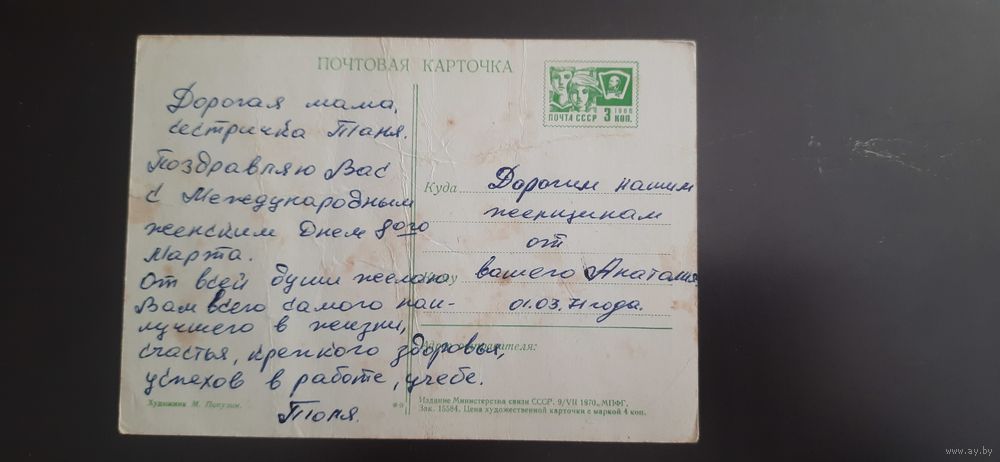 ПОЧТОВАЯ КАРТОЧКА
ПОЧТА СССР 3 КОП.
1966
Дорогая мама,
сестричка Таня.
Поздравляю Вас
с Международным
женским Днем 8ого
Марта.
От всей души желаю
Вам всего самого наи-
лучшего в жизни,
счастья, крепкого здоровья,
успехов в работе, учебе.
Толя.
Художник М.
**
Куда
Дорогим нашим
женщинам
от
Кому
вашего Анатолия
01.03.71 года.
Адрес отправителя:
Издание Министерства связи СССР. 9/VII 1970. МПФГ.
Зак. 15584. Цена художественной карточки с маркой 4 коп.
www.ay.by